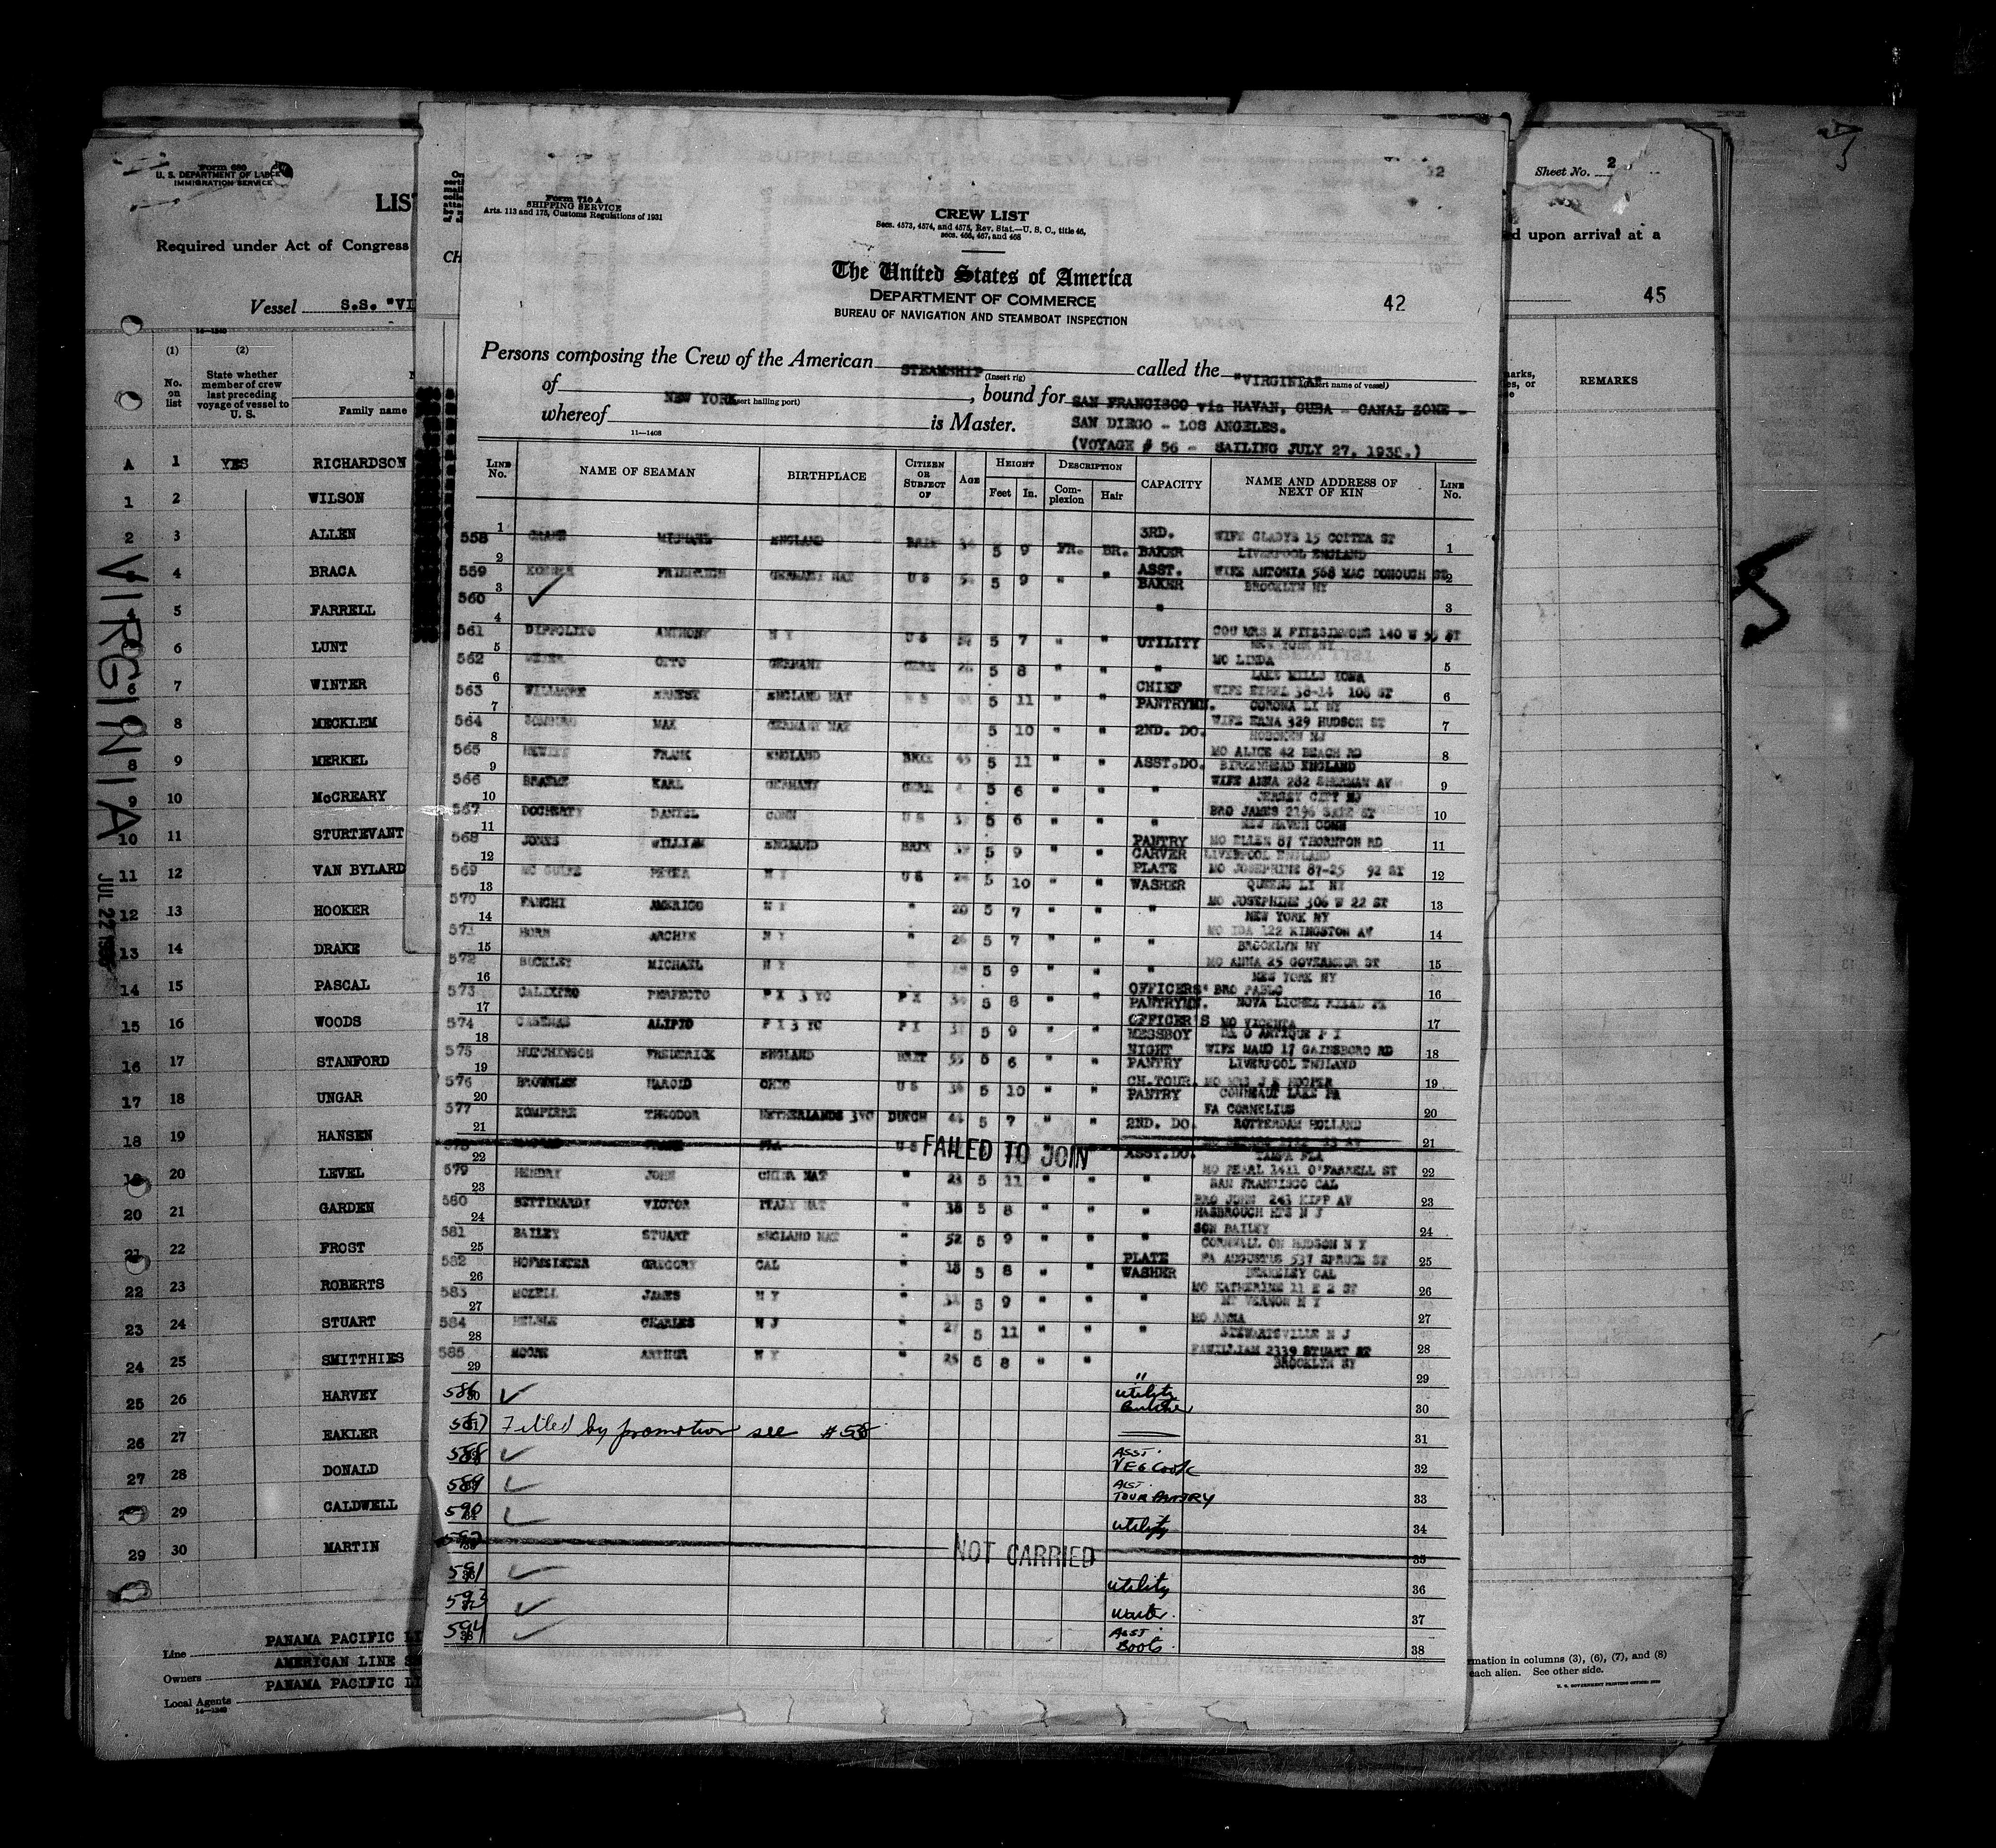 Form 680
U. S. DEPARTMENT OF LABOR
IMMIGRATION SERVICE
LIST
Required under Act of Congress
Vessel S.S. "VI
14—1240
(1)
No. on list
(2)
State whether member of crew last preceding voyage of vessel to U. S.
Family name
A 1 YES RICHARDSON
1 2 WILSON
2 3 ALLEN
4 BRACA
5 FARRELL
6 LUNT
6 7 WINTER
8 MECKLEM
8 9 MERKEL
9 10 McCREARY
10 11 STURTEVANT
11 12 VAN BYLARD
12 13 HOOKER
13 14 DRAKE
14 15 PASCAL
15 16 WOODS
16 17 STANFORD
17 18 UNGAR
18 19 HANSEN
19 20 LEVEL
20 21 GARDEN
21 22 FROST
22 23 ROBERTS
23 24 STUART
24 25 SMITTHIES
25 26 HARVEY
26 27 EAKLER
27 28 DONALD
29 CALDWELL
29 30 MARTIN
VIRGINIA
JUL 22
Line PANAMA PACIFIC LI
Owners AMERICAN LINE S
Local Agents PANAMA PACIFIC LI
14—1240
Form 710 A
SHIPPING SERVICE
Arts. 113 and 175, Customs Regulations of 1931
CREW LIST
Secs. 4573, 4574, and 4575, Rev. Stat.—U. S. C., title 46,
secs. 466, 467, and 468
The United States of America
DEPARTMENT OF COMMERCE
BUREAU OF NAVIGATION AND STEAMBOAT INSPECTION
42
Persons composing the Crew of the American STEAMSHIP (Insert rig) called the "VIRGINIA" (Insert name of vessel)
of NEW YORK (Insert hailing port), bound for SAN FRANCISCO via HAVAN, CUBA - CANAL ZONE -
whereof is Master. SAN DIEGO - LOS ANGELES.
11—1408
(VOYAGE # 56 - SAILING JULY 27, 1935.)
LINE No.
NAME OF SEAMAN
BIRTHPLACE
CITIZEN OR SUBJECT OF
AGE
HEIGHT
Feet In.
DESCRIPTION
Complexion Hair
CAPACITY
NAME AND ADDRESS OF NEXT OF KIN
LINE No.
558 1 MICHAEL ENGLAND BRIT 34 5 9 FR. BR. 3RD. BAKER WIFE GLADYS 15 COLTER ST LIVERPOOL ENGLAND 1
559 2 FRIEDRICH GERMANY NAT U S 5 9 " " ASST. BAKER WIFE ANTONIA 568 MAC DONOUGH ST BROOKLYN NY 2
560 3 ✓ " 3
561 4 DIPPOLITO ANTHONY N Y U S 5 7 " " UTILITY COU MRS M FITZSIMMONS 140 W 55 ST NEW YORK NY 4
562 5 OTTO GERMANY GERM 5 8 " " " MO LINDA LAKE MILLS IOWA 5
563 6 WILLMORE ERNEST ENGLAND NAT U S 5 11 " " CHIEF PANTRYMN. WIFE ETHEL 38-14 108 ST CORONA LI NY 6
564 7 MAX GERMANY NAT 5 10 " " 2ND. DO. WIFE ERNA 329 HUDSON ST HOBOKEN NJ 7
565 8 FRANK ENGLAND BRIT 45 5 11 " " ASST.DO. MO ALICE 42 BEACH RD BIRKENHEAD ENGLAND 8
566 9 KARL GERMANY GERM 5 6 " " " WIFE ANNA 282 SHERMAN AV JERSEY CITY NJ 9
567 10 DOCHERTY DANIEL CONN U S 5 6 " " " BRO JAMES NEW HAVEN CONN 10
568 11 JONES WILLIAM ENGLAND BRIT 5 9 " " PANTRY CARVER MO ELLEN 87 THORNTON RD LIVERPOOL ENGLAND 11
569 12 MC GUIRE PETER N Y U S 5 10 " " PLATE WASHER MO JOSEPHINE 87-25 92 ST QUEENS LI NY 12
570 13 FANCHI AMERIGO N Y " 20 5 7 " " " MO JOSEPHINE 306 W 22 ST NEW YORK NY 13
571 14 HORN ARCHIE N Y " 26 5 7 " " " MO IDA 122 KINGSTON AV BROOKLYN NY 14
572 15 BUCKLEY MICHAEL N Y 5 9 " " " MO ANNA 25 GOVERNEUR ST NEW YORK NY 15
573 16 CALIXTRO PERFECTO P I 3 YC P I 5 8 " " OFFICERS' PANTRYMN. BRO PABLO 16
574 17 ALIPIO P I 3 YC P I 5 9 " " OFFICER'S MESSBOY MO VICENTA ANTIQUE P I 17
575 18 HUTCHINSON FREDERICK ENGLAND BRIT 55 5 6 " " NIGHT PANTRY WIFE MAUD 17 GAINSBORO RD LIVERPOOL ENGLAND 18
576 19 BROWNLEE HAROLD OHIO U S 5 10 " " CH.TOUR. PANTRY MO MRS J E HOOPER CONNEAUT LAKE PA 19
577 20 KOMPIERE THEODOR NETHERLANDS 3YC DUTCH 44 5 7 " " 2ND. DO. FA CORNELIUS ROTTERDAM HOLLAND 20
578 21 FRANK FLA U S FAILED TO JOIN ASST.DO. TAMPA FLA 21
579 22 HENDRY JOHN CHINA NAT " 23 5 11 " " " MO PEARL 1411 O'FARRELL ST SAN FRANCISCO CAL 22
580 23 SETTINARDI VICTOR ITALY NAT " 38 5 8 " " " BRO JOHN 243 KIPP AV HASBROUCH HTS N J 23
581 24 BAILEY STUART ENGLAND NAT " 52 5 9 " " " SON BAILEY CORNWALL ON HUDSON N Y 24
582 25 HOFMEISTER GREGORY CAL " 18 5 8 " " PLATE WASHER FA AUGUSTUS 537 SPRUCE ST BERKELEY CAL 25
583 26 MOZELL JAMES N Y " 5 9 " " " MO KATHERINE 11 E 2 ST MT VERNON N Y 26
584 27 HELBLE CHARLES N J " 27 5 11 " " " MO ANNA STEWARTSVILLE N J 27
585 28 MOORE ARTHUR N Y " 25 5 8 " " FA WILLIAM 2339 STUART ST BROOKLYN NY 28
29 " 29
586 30 ✓ utility Butcher 30
587 Filled by promotion see #58 31
588 ✓ ASST. VEG COOK 32
589 ✓ ASST. TOUR PANTRY 33
590 ✓ utility 34
NOT CARRIED 35
591 ✓ utility 36
593 ✓ Waiter. 37
594 ✓ ASST. Boots. 38
Sheet No. 2
d upon arrival at a
45
REMARKS
rmation in columns (3), (6), (7), and (8)
each alien. See other side.
U. S. GOVERNMENT PRINTING OFFICE